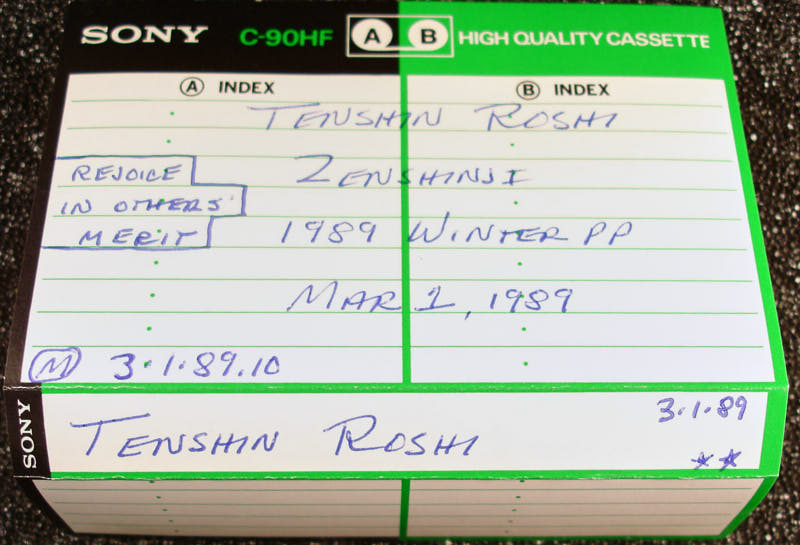 SONY C-90HF A B HIGH QUALITY CASSETTE
A INDEX B INDEX
TENSHIN ROSHI
REJOICE
IN OTHERS'
MERIT
ZENSHINJI
1989 WINTER PP
MAR 1, 1989
M 3.1.89.10
SONY
TENSHIN ROSHI
3.1.89